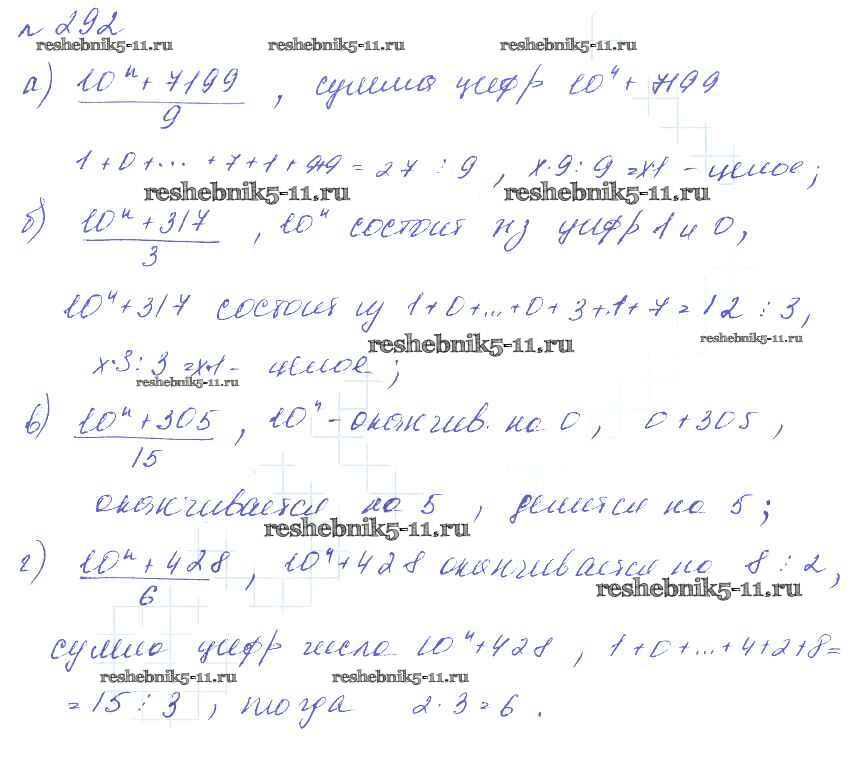 № 292
reshebnik5-11.ru reshebnik5-11.ru reshebnik5-11.ru
а) (10ⁿ + 7199)/9 , сумма цифр 10ⁿ + 7199
1 + 0 + ... + 7 + 1 + 9+9 = 27 ⋮ 9 , x·9 : 9 = x·1 - целое;
reshebnik5-11.ru reshebnik5-11.ru
б) (10ⁿ + 317)/3 , 10ⁿ состоит из цифр 1 и 0,
10ⁿ + 317 состоит из 1 + 0 + ... + 0 + 3 + 1 + 7 = 12 ⋮ 3,
reshebnik5-11.ru reshebnik5-11.ru
x·3 : 3 = x·1 - целое;
reshebnik5-11.ru
в) (10ⁿ + 305)/15 , 10ⁿ - оканчив. на 0 , 0 + 305 ,
оканчивается на 5 , делится на 5 ;
reshebnik5-11.ru
г) (10ⁿ + 428)/6 , 10ⁿ + 428 оканчивается на 8 ⋮ 2,
reshebnik5-11.ru
сумма цифр числа 10ⁿ + 428 , 1 + 0 + ... + 4 + 2 + 8 =
reshebnik5-11.ru reshebnik5-11.ru
= 15 ⋮ 3 , тогда 2 · 3 = 6 .